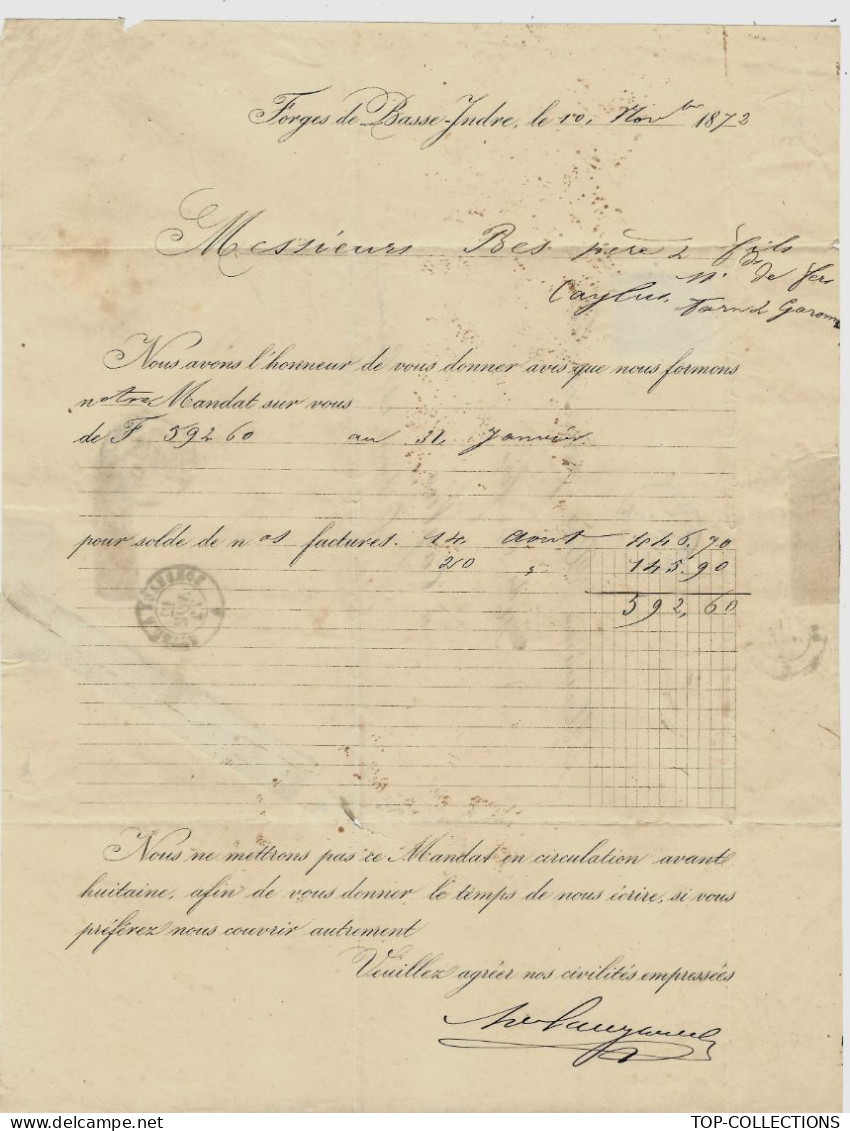 Forges de Basse-Indre, le 10, Novbr 1872
Messieurs Bes père & fils
Mds de fers
Caylus, Tarn & Garonne
Nous avons l'honneur de vous donner avis que nous formons
notre Mandat sur vous
de F 592 60 au 31, Janvier
pour solde de nos factures. 14 Aout 446,70
20 " 145.90
592,60
Nous ne mettrons pas ce Mandat en circulation avant
huitaine, afin de vous donner le temps de nous écrire, si vous
préférez nous couvrir autrement
Veuillez agréer nos civilités empressées
TOP-COLLECTIONS